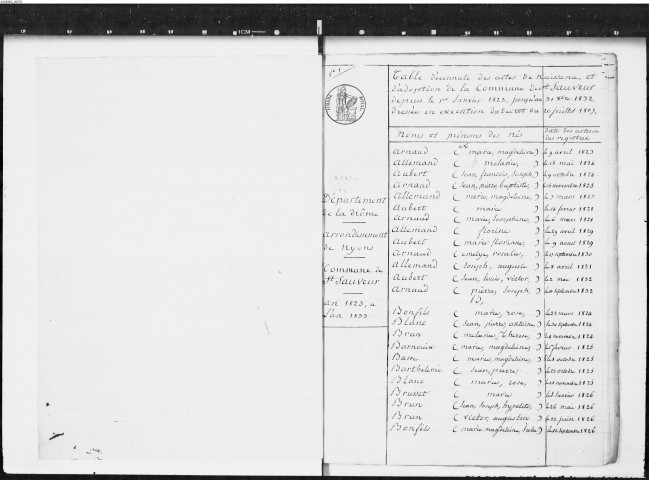 Table décennale des actes de naissance et
d'adoption de la Commune de St Sauveur
depuis le 1er Janvier 1823, jusqu'au 31 Xbre 1832
dressée en exécution du décret du 20 juillet 1807.
Département
de la drôme
Arrondissement
de Nyons
Commune de
St Sauveur
an 1823, a
l'an 1833
Noms et prénoms des nés
date des actes
des registres
A
Arnaud ( marie, magdeleine ) le 9 avril 1823
Allemand ( melanie, ) le 15 mai 1824
Aubert ( Jean, françois, Joseph ) le 9 octobre 1824
Arnaud ( Jean, pierre, baptiste, ) novembre 1825
Allemand ( marie, magdeleine, ) le 7 mars 1827
Aubert ( marie ) fevrier 1828
Arnaud ( marie, Josephine, ) le 6 mars 1828
Allemand ( florine ) le 29 avril 1829
Aubert ( marie florianne, ) le 9 aout 1829
Arnaud ( emelye, rosalie, ) septembre 1830
Allemand ( Joseph, auguste ) avril 1831
Aubert ( Jean, louis, victor, ) le 2 mai 1832
Arnaud ( pierre, Joseph ) septembre 1832
B
Bonfils ( marie, rose, ) mars 1824
Blanc ( Jean, pierre, antoine, ) septembre 1824
Brun ( melanie, Therese, ) 1824
Barnouin ( marie, magdeleine, ) fevrier 1825
Basse ( marie, magdeleine, ) octobre 1825
Barthelemie ( Jean, pierre ) octobre 1825
Blanc ( marie, rose, ) 1825
Brusset ( marie ) Janvier 1826
Brun ( Jean, Joseph, hypolite, ) le 26 mai 1826
Brun ( victor, augustin ) le 22 juin 1826
Bonfils ( marie magdeleine, Julie ) septembre 1826